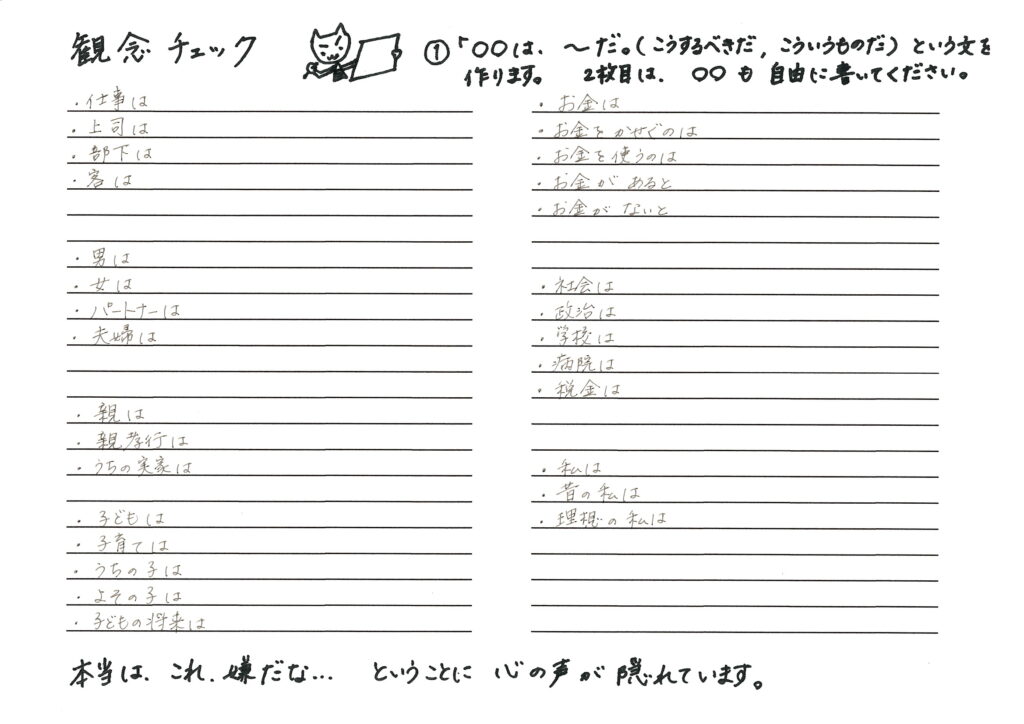 観念チェック
①「○○は、～だ。(こうするべきだ,こういうものだ)という文を
作ります。 2枚目は、○○も自由に書いてください。
・仕事は
・上司は
・部下は
・客は
・男は
・女は
・パートナーは
・夫婦は
・親は
・親孝行は
・うちの実家は
・子どもは
・子育ては
・うちの子は
・よその子は
・子どもの将来は
・お金は
・お金をかせぐのは
・お金を使うのは
・お金があると
・お金がないと
・社会は
・政治は
・学校は
・病院は
・税金は
・私は
・昔の私は
・理想の私は
本当は、これ、嫌だな… ということに 心の声が隠れています。